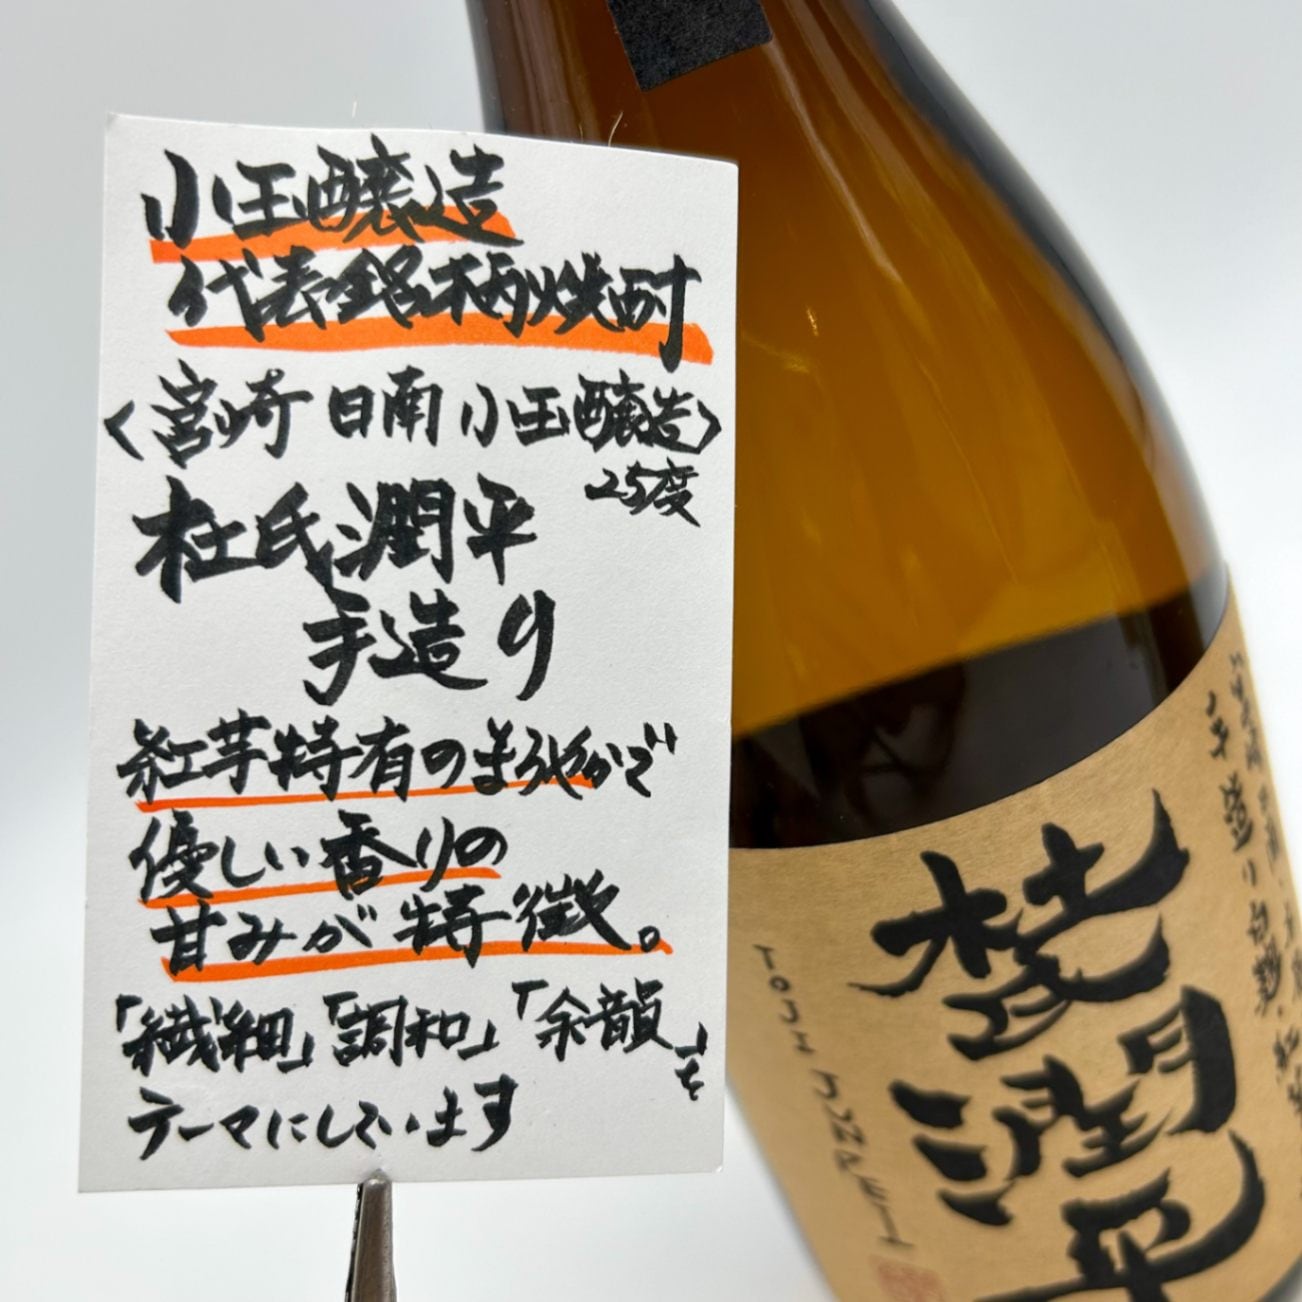 小玉醸造
代表銘柄焼酎
〈宮崎 日南 小玉醸造〉
25度
杜氏潤平
手造り
紅芋特有のまろやかで
優しい香りの
甘みが特徴。
「繊細」「調和」「余韻」を
テーマにしています
杜氏潤平
TOJI JUNPEI
手造り